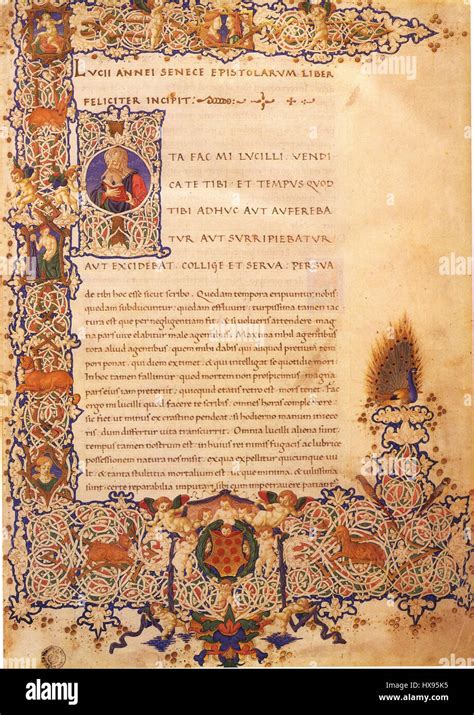 LVCII ANNEI SENECE EPISTOLARVM LIBER
FELICITER INCIPIT:
TA FAC MI LVCILLI· VENDI
CA TE TIBI· ET TEMPVS QVOD
TIBI ADHVC AVT AVFEREBA
TVR AVT SVRRIPIEBATVR
AVT EXCIDEBAT· COLLIGE ET SERVA· PERSVA
de tibi hoc esse sicut scribo. Quedam tempora eripiuntur nobis
quedam subducuntur: quedam effluunt: turpissima tamen iac
tura est que per negligentiam fit· & si volueris attendere magna
pars vite elabitur male agentibus· Maxima nihil agentibus
tota aliud agentibus· quem mihi dabis qui aliquod pretium tem
pori ponat· qui diem extimet· & qui intelligat se quotidie mori
In hoc enim fallimur quod mortem non prospicimus· magna
eius pars iam preterit· quicquid etatis retro est mors tenet· Fac
ergo mi lucilli quod facere te scribis· omnes horas complectere·
sic fiet ut minus ex crastino pendeas· si hodierno manum inieceris
dum differtur vita transcurrit· Omnia lucilli aliena sunt
tempus tamen nostrum est· in huius rei unius fugacis ac lubrice
possessionem natura nos misit· ex qua expellit quicunque vult
& tanta stultitia mortalium est ut que minima & vilissima
sint· certe reparabilia imputari sibi cum impetravere patiantur
alamy
alamy stock photo
HX95K5
www.alamy.com